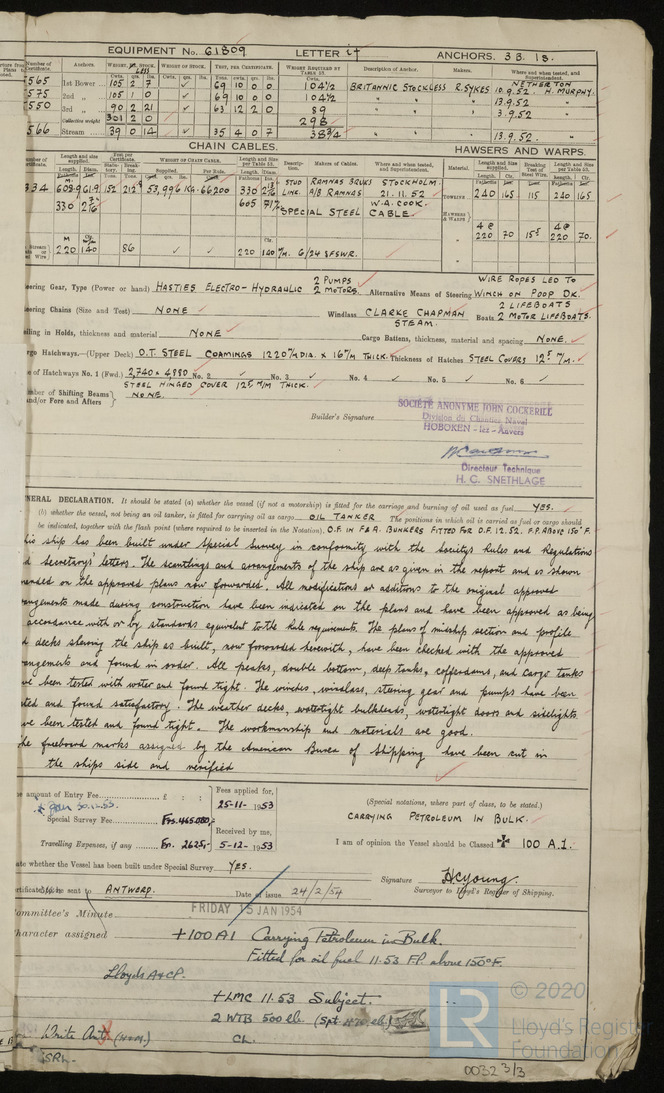 EQUIPMENT No. 61809 LETTER it ANCHORS. 3B. 1S.
Anchors. WEIGHT, STOCK. WEIGHT OF STOCK. TEST, PER CERTIFICATE. WEIGHT REQUIRED BY TABLE 23. Description of Anchor. Makers. Where and when tested, and Superintendent.
565 1st Bower 105 2 7 ✓ 69 10 0 0 104½ BRITANNIC STOCKLESS R.SYKES NETHERTON 10.9.52. H. MURPHY.
575 2nd " 105 1 0 ✓ 69 10 0 0 104½ " " 13.9.52 "
550 3rd " 90 2 21 ✓ 63 12 2 0 89 " " 3.9.52 "
Collective weight 301 2 0 298
566 Stream 39 0 14 ✓ 35 4 0 7 38¾ " " 13.9.52. "
CHAIN CABLES. HAWSERS AND WARPS.
334 609.9 61.9 152 212 53,996 KG. 66200 330 STUD LINK. RAMNAS BRUKS A/B RAMNAS STOCKHOLM. 21.11.52 TOWLINE 240 165 115 240 165
330 605 71 W.A. COOK.
SPECIAL STEEL CABLE. HAWSERS & WARPS 4@ 220 70 15.5 4@ 220 70.
220 140 86 ✓ ✓ 220 140 M/M. 6/24 SFSWR.
Steering Gear, Type (Power or hand) HASTIES ELECTRO-HYDRAULIC 2 PUMPS 2 MOTORS. Alternative Means of Steering WIRE ROPES LED TO WINCH ON POOP DK.
Steering Chains (Size and Test) NONE Windlass CLARKE CHAPMAN STEAM. Boats 2 LIFEBOATS 2 MOTOR LIFEBOATS.
Ceiling in Holds, thickness and material NONE Cargo Battens, thickness, material and spacing NONE.
Cargo Hatchways.—(Upper Deck) O.T. STEEL COAMINGS 1220 M/M DIA. x 16 M/M THICK. Thickness of Hatches STEEL COVERS 12.5 M/M.
of Hatchways No. 1 (Fwd.) 2,740 x 4,880 No. 2 ✓ No. 3 ✓ No. 4 ✓ No. 5 ✓ No. 6 ✓
STEEL HINGED COVER 12.5 M/M THICK.
Number of Shifting Beams and/or Fore and Afters } NONE.
Builder's Signature
SOCIÉTÉ ANONYME JOHN COCKERILL
Division du Chantier Naval
HOBOKEN - lez - Anvers
Directeur Technique
H. C. SNETHLAGE
GENERAL DECLARATION. It should be stated (a) whether the vessel (if not a motorship) is fitted for the carriage and burning of oil used as fuel YES.
(b) whether the vessel, not being an oil tanker, is fitted for carrying oil as cargo OIL TANKER The positions in which oil is carried as fuel or cargo should
be indicated, together with the flash point (where required to be inserted in the Notation). O.F. IN F & A. BUNKERS FITTED FOR O.F. 12.52. F.P. ABOVE 150°F.
This ship has been built under Special Survey in conformity with the Societys Rules and Regulations
and Secretary's letters. The scantlings and arrangements of the ship are as given in the report and as shown
on the approved plans now forwarded. All modifications or additions to the original approved
arrangements made during construction have been indicated on the plans and have been approved as being
accordance with or by standards equivalent to the Rule requirements. The plans of midship section and profile
decks showing the ship as built, now forwarded herewith, have been checked with the approved
arrangements and found in order. All peaks, double bottom, deep tanks, cofferdams, and cargo tanks
have been tested with water and found tight. The winches, windlass, steering gear and pumps have been
tested and found satisfactory. The weather decks, watertight bulkheads, watertight doors and sidelights
have been tested and found tight. The workmanship and materials are good.
The freeboard marks assigned by the American Bureau of Shipping have been cut in
the ships side and verified
The amount of Entry Fee £ : :
Special Survey Fee Frs. 465.080,-
Travelling Expenses, if any Fr. 2625,-
Fees applied for, 25-11-1953
Received by me, 5-12-1953
(Special notations, where part of class, to be stated.)
CARRYING PETROLEUM IN BULK.
I am of opinion the Vessel should be Classed ✠ 100 A.1.
State whether the Vessel has been built under Special Survey YES.
Signature HCYoung.
Surveyor to Lloyd's Register of Shipping.
Certificate to be sent to ANTWERP. Date of issue 24/2/54
Committee's Minute FRIDAY 15 JAN 1954
Character assigned +100A1 Carrying Petroleum in Bulk.
Fitted for oil fuel 11.53 F.P. above 150°F.
Lloyds A&CP.
+LMC 11.53 Subject.
2 WTB 500 lb.
CL.
Write Ant (H&M.)
© 2020
LR
Lloyd's Register
Foundation
0032 3/3